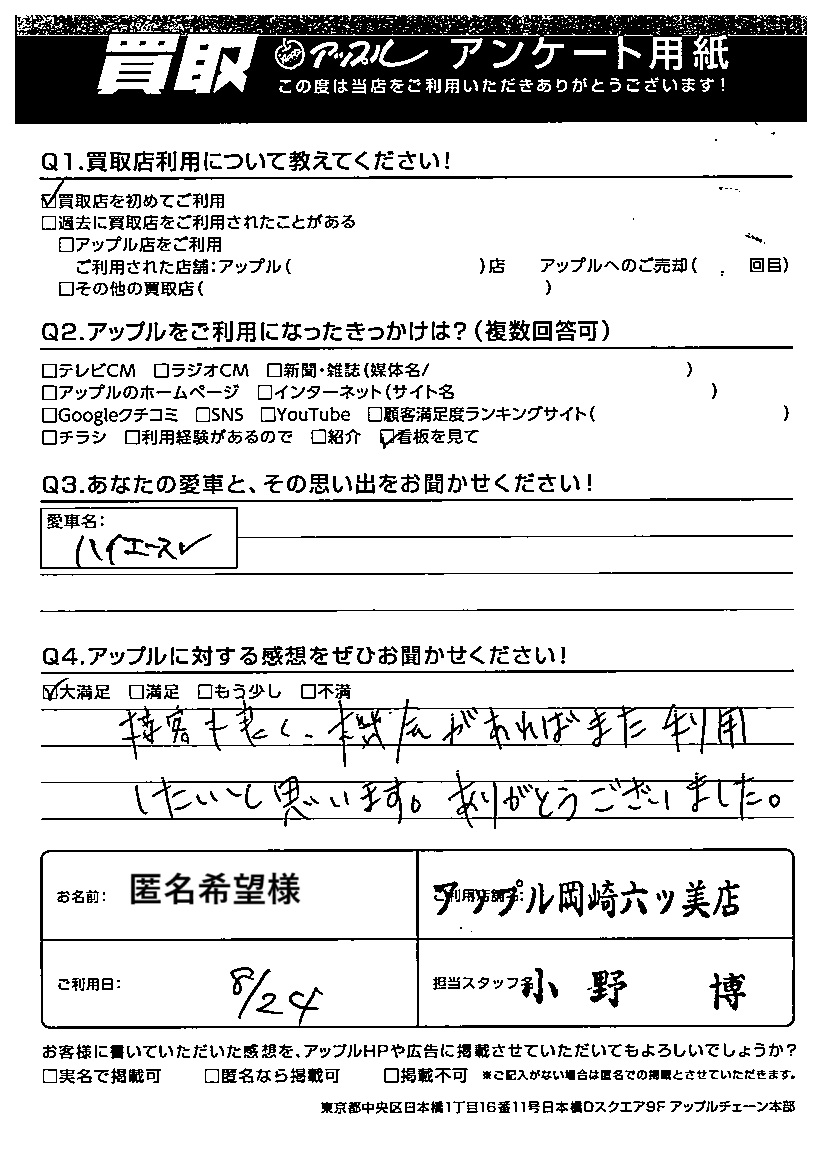 買取 アップル アンケート用紙
この度は当店をご利用いただきありがとうございます!
Q1.買取店利用について教えてください!
☑買取店を初めてご利用
□過去に買取店をご利用されたことがある
□アップル店をご利用
ご利用された店舗:アップル( )店 アップルへのご売却( 回目)
□その他の買取店( )
Q2.アップルをご利用になったきっかけは?(複数回答可)
□テレビCM □ラジオCM □新聞・雑誌(媒体名/ )
□アップルのホームページ □インターネット(サイト名 )
□Googleクチコミ □SNS □YouTube □顧客満足度ランキングサイト( )
□チラシ □利用経験があるので □紹介 ☑看板を見て
Q3.あなたの愛車と、その思い出をお聞かせください!
愛車名:
ハイエースV
Q4.アップルに対する感想をぜひお聞かせください!
☑大満足 □満足 □もう少し □不満
接客も良く、機会があればまた利用
したいいし思います。ありがとうございました。
お名前: 匿名希望様 ご利用店舗名: アップル岡崎六ツ美店
ご利用日: 8/24 担当スタッフ名 小野 博
お客様に書いていただいた感想を、アップルHPや広告に掲載させていただいてもよろしいでしょうか?
□実名で掲載可 □匿名なら掲載可 □掲載不可 ※ご記入がない場合は匿名での掲載とさせていただきます。
東京都中央区日本橋1丁目16番11号日本橋Dスクエア9F アップルチェーン本部